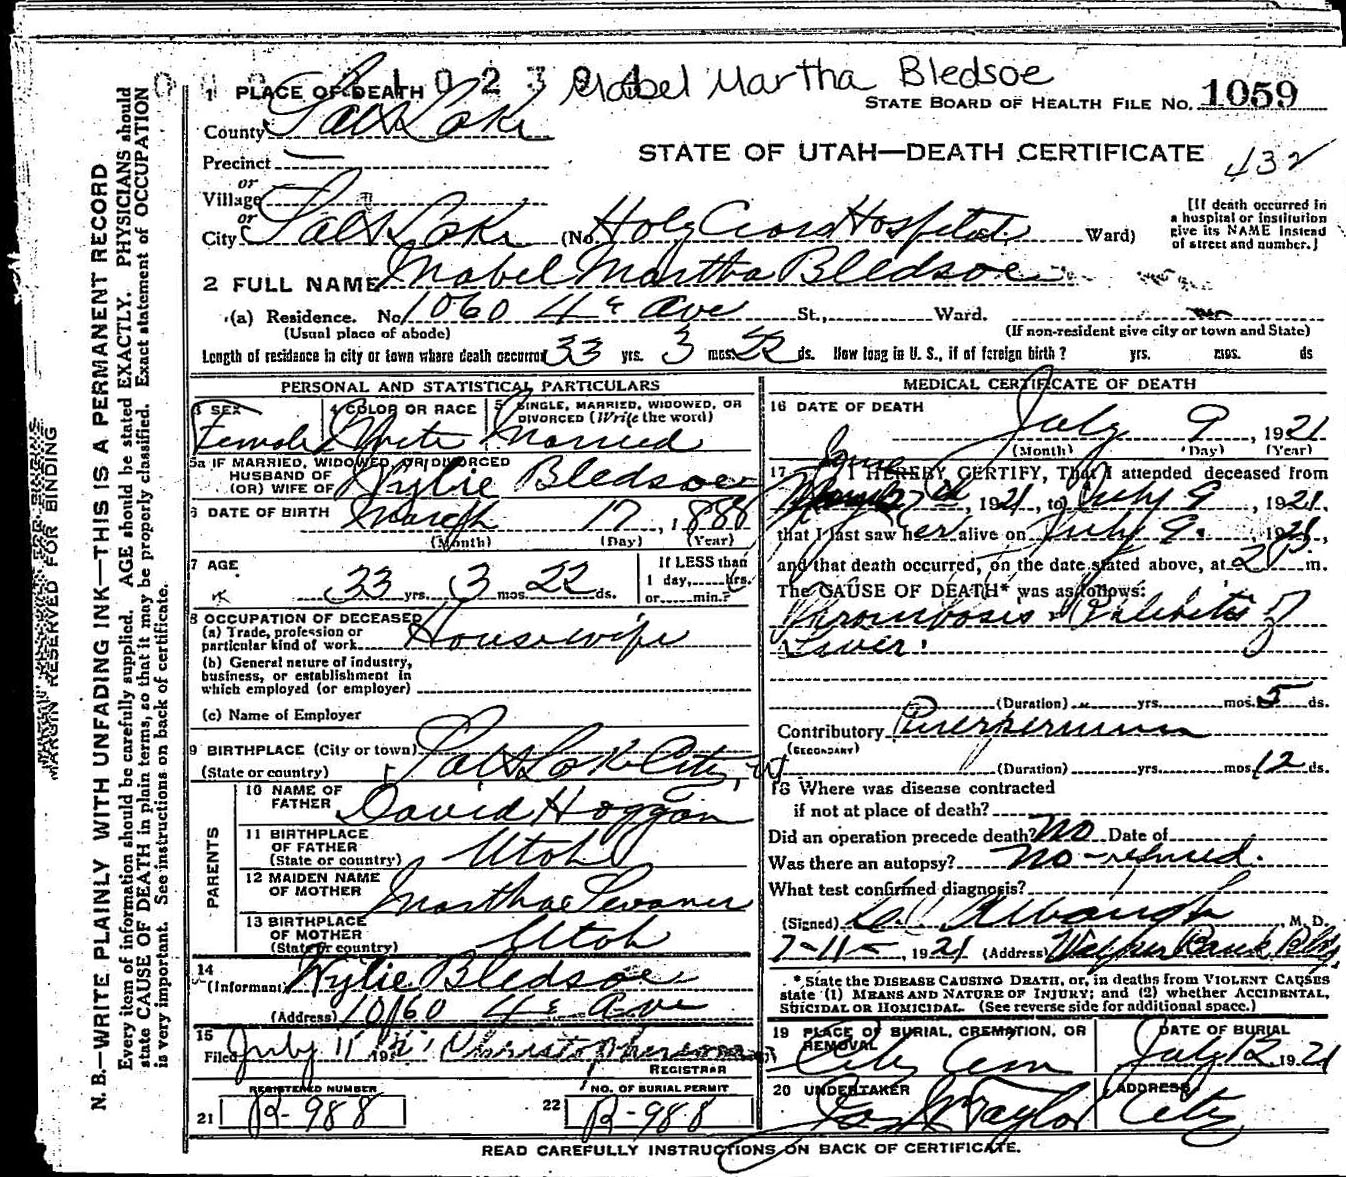 Mabel Martha Bledsoe
1 PLACE OF DEATH
STATE BOARD OF HEALTH FILE NO. 1059
County Salt Lake
STATE OF UTAH—DEATH CERTIFICATE
432
Precinct
or
Village
or
City Salt Lake (No. Holy Cross Hospital Ward)
[If death occurred in
a hospital or institution
give its NAME instead
of street and number.]
2 FULL NAME Mabel Martha Bledsoe
(a) Residence. No. 1060 4th Ave St., Ward.
(Usual place of abode) (If non-resident give city or town and State)
Length of residence in city or town where death occurred 33 yrs. 3 mos. 22 ds. How long in U. S., if of foreign birth? yrs. mos. ds
PERSONAL AND STATISTICAL PARTICULARS
3 SEX
Female
4 COLOR OR RACE
White
5 SINGLE, MARRIED, WIDOWED, OR
DIVORCED (Write the word)
Married
5a IF MARRIED, WIDOWED, OR DIVORCED
HUSBAND OF
(OR) WIFE OF Wylie Bledsoe
6 DATE OF BIRTH March 17, 1888
(Month) (Day) (Year)
7 AGE
33 yrs. 3 mos. 22 ds.
If LESS than
1 day, hrs.
or min.?
8 OCCUPATION OF DECEASED
(a) Trade, profession or
particular kind of work Housewife
(b) General nature of industry,
business, or establishment in
which employed (or employer)
(c) Name of Employer
9 BIRTHPLACE (City or town)
(State or country) Salt Lake City, Ut
PARENTS
10 NAME OF
FATHER David Hoggan
11 BIRTHPLACE
OF FATHER
(State or country) Utah
12 MAIDEN NAME
OF MOTHER Martha
13 BIRTHPLACE
OF MOTHER
(State or country) Utah
14
(Informant) Wylie Bledsoe
(Address) 1060 4th Ave
15
Filed July 11 192
REGISTRAR
REGISTERED NUMBER
21 R-988
NO. OF BURIAL PERMIT
22 R-988
MEDICAL CERTIFICATE OF DEATH
16 DATE OF DEATH
July 9, 1921
(Month) (Day) (Year)
17 I HEREBY CERTIFY, That I attended deceased from
June, 1921, to July 9, 1921,
that I last saw her alive on July 9, 1921,
and that death occurred, on the date stated above, at 2 P. m.
The CAUSE OF DEATH* was as follows:
Thrombosis Phlebitis of
Liver.
(Duration) yrs. mos. 5 ds.
Contributory Puerperium
(SECONDARY)
(Duration) yrs. mos. 12 ds.
18 Where was disease contracted
if not at place of death?
Did an operation precede death? No Date of
Was there an autopsy? no-refused.
What test confirmed diagnosis?
(Signed) Albaugh, M. D.
7-11-, 1921 (Address) Walker Bank Bldg.
* State the DISEASE CAUSING DEATH, or, in deaths from VIOLENT CAUSES
state (1) MEANS AND NATURE OF INJURY; and (2) whether ACCIDENTAL,
SUICIDAL OR HOMICIDAL. (See reverse side for additional space.)
19 PLACE OF BURIAL, CREMATION, OR
REMOVAL
City Cem
DATE OF BURIAL
July 12 1921
20 UNDERTAKER
Taylor
ADDRESS
City
READ CAREFULLY INSTRUCTIONS ON BACK OF CERTIFICATE.
MARGIN RESERVED FOR BINDING
N. B.—WRITE PLAINLY WITH UNFADING INK—THIS IS A PERMANENT RECORD
Every item of information should be carefully supplied. AGE should be stated EXACTLY. PHYSICIANS should
state CAUSE OF DEATH in plain terms, so that it may be properly classified. Exact statement of OCCUPATION
is very important. See instructions on back of certificate.